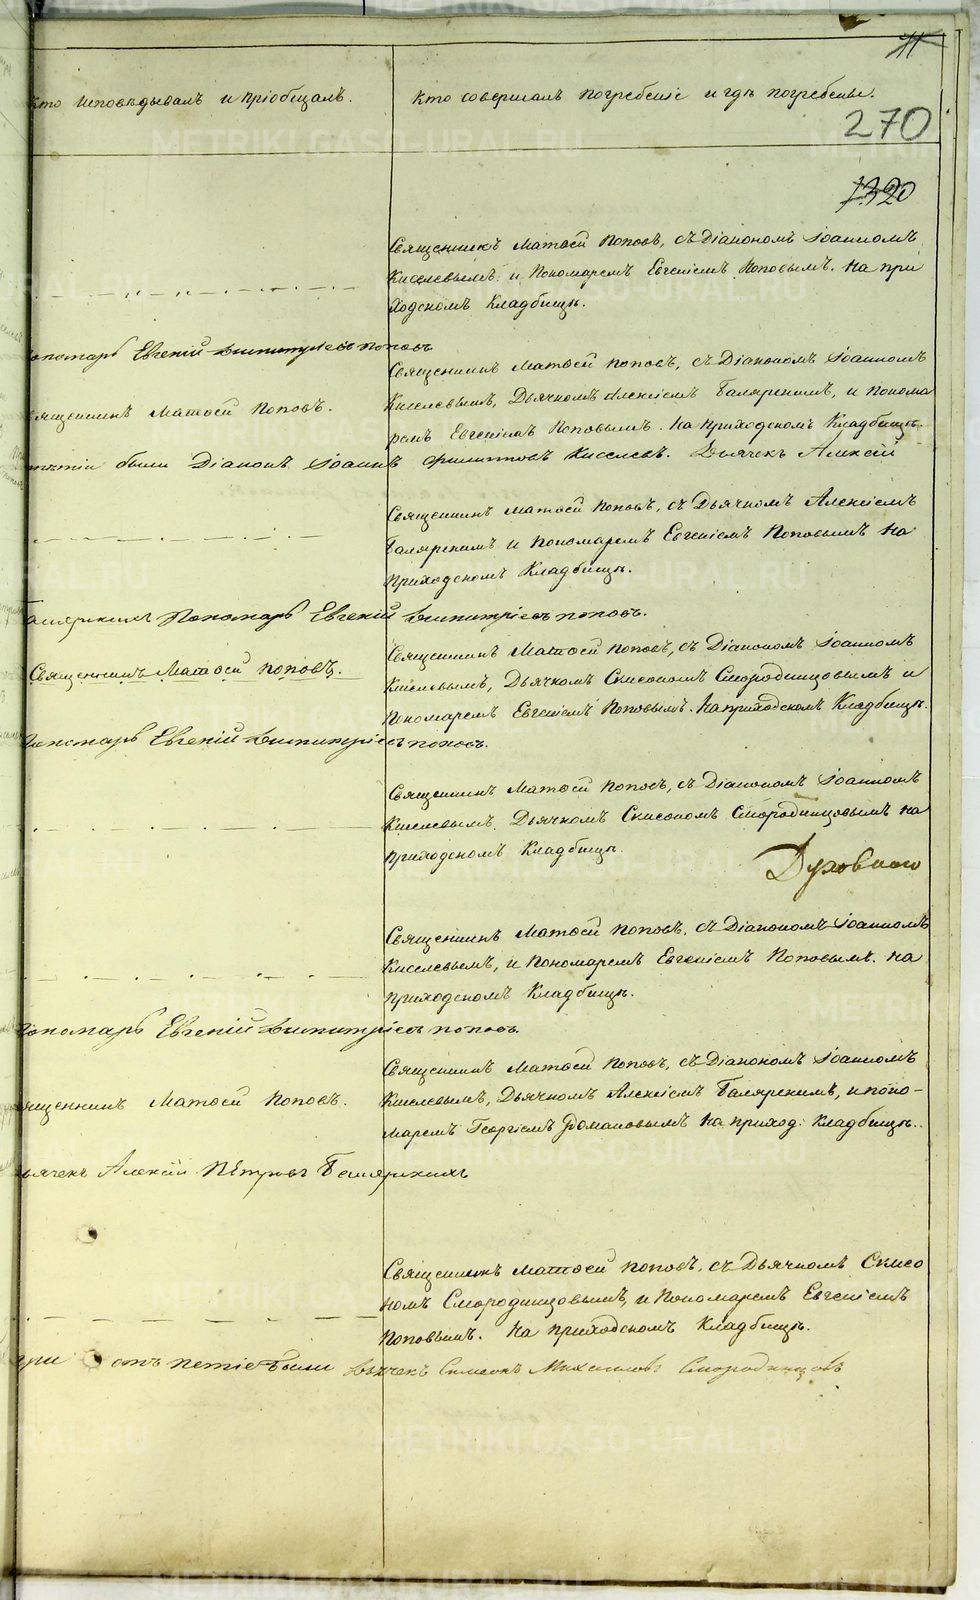 11
Кто исповѣдывалъ и пріобщалъ.
Кто совершалъ погребеніе и гдѣ погребены.
270
1320
Священникъ Матѳей Поповъ, съ Діакономъ Іоанномъ
Киселевымъ и Пономаремъ Евгеніемъ Поповымъ. На при
ходскомъ Кладбищѣ.
пономарь Евгеній Димитріевъ поповъ
Священникъ Матѳей Поповъ, съ Діакономъ Іоанномъ
священникъ Матѳей Поповъ.
Киселевымъ, Дьячкомъ Алексіемъ Топоркимъ, и понома
ремъ Евгеніемъ Поповымъ. На приходскомъ Кладбищѣ.
были Діаконъ Іоаннъ Филипповъ Киселевъ. Дьячекъ Алексій
Священникъ Матѳей Поповъ, съ Дьячкомъ Алексіемъ
и Пономаремъ Евгеніемъ Поповымъ На
приходскомъ Кладбищѣ.
Пономарь Евгеній Димитріевъ поповъ.
Священникъ Матѳей Поповъ, съ Діакономъ Іоанномъ
Священникъ Матѳей Поповъ.
Киселевымъ, Дьячкомъ Симеономъ Смородинцовымъ и
Пономаремъ Евгеніемъ Поповымъ. На приходскомъ Кладбищѣ.
Пономарь Евгеній Димитріевъ поповъ.
Священникъ Матѳей Поповъ, съ Діакономъ Іоанномъ
Киселевымъ, Дьячкомъ Симеономъ Смородинцовымъ на
приходскомъ Кладбищѣ.
Духовнаго
Священникъ Матѳей Поповъ, съ Діакономъ Іоанномъ
Киселевымъ, и Пономаремъ Евгеніемъ Поповымъ. На
приходскомъ Кладбищѣ.
Пономарь Евгеній Димитріевъ поповъ.
Священникъ Матѳей Поповъ, съ Діакономъ Іоанномъ
священникъ Матѳей Поповъ.
Киселевымъ, Дьячкомъ Алексіемъ и поно-
маремъ Георгіемъ Романовымъ На приход: Кладбищѣ.
дьячекъ Алексій Петровъ
Священникъ Матѳей Поповъ, съ Дьячкомъ Симео
номъ Смородинцовымъ, и Пономаремъ Евгеніемъ
Поповымъ. На приходскомъ Кладбищѣ.
при отъпетіе были дьячекъ Симеонъ Михаиловъ Смородинцовъ
METRIKI.GASO-URAL.RU